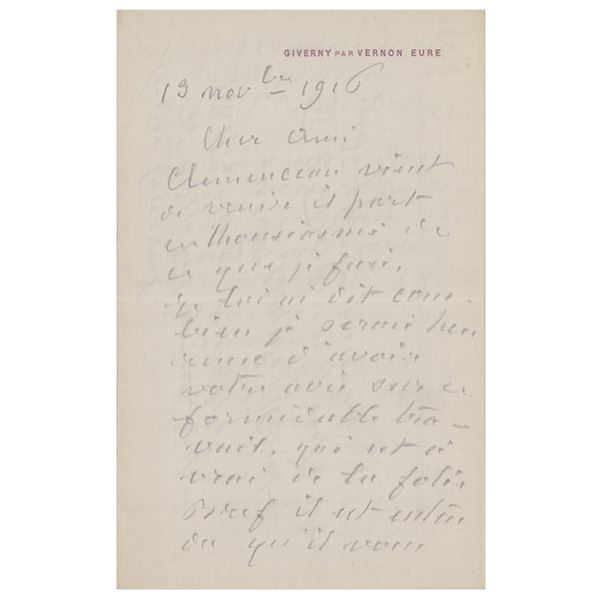 GIVERNY PAR VERNON. EURE
13 novbre 1916
Cher ami
Clemenceau vient
de venir il part
enthousiasmé de
ce que je fais,
je lui ai dit com-
bien je serais heu
reuse d'avoir
votre avis sur ce
formidable tra-
vail, qui est à
vrai, de la folie
Bref il est enten
du qu'il vous